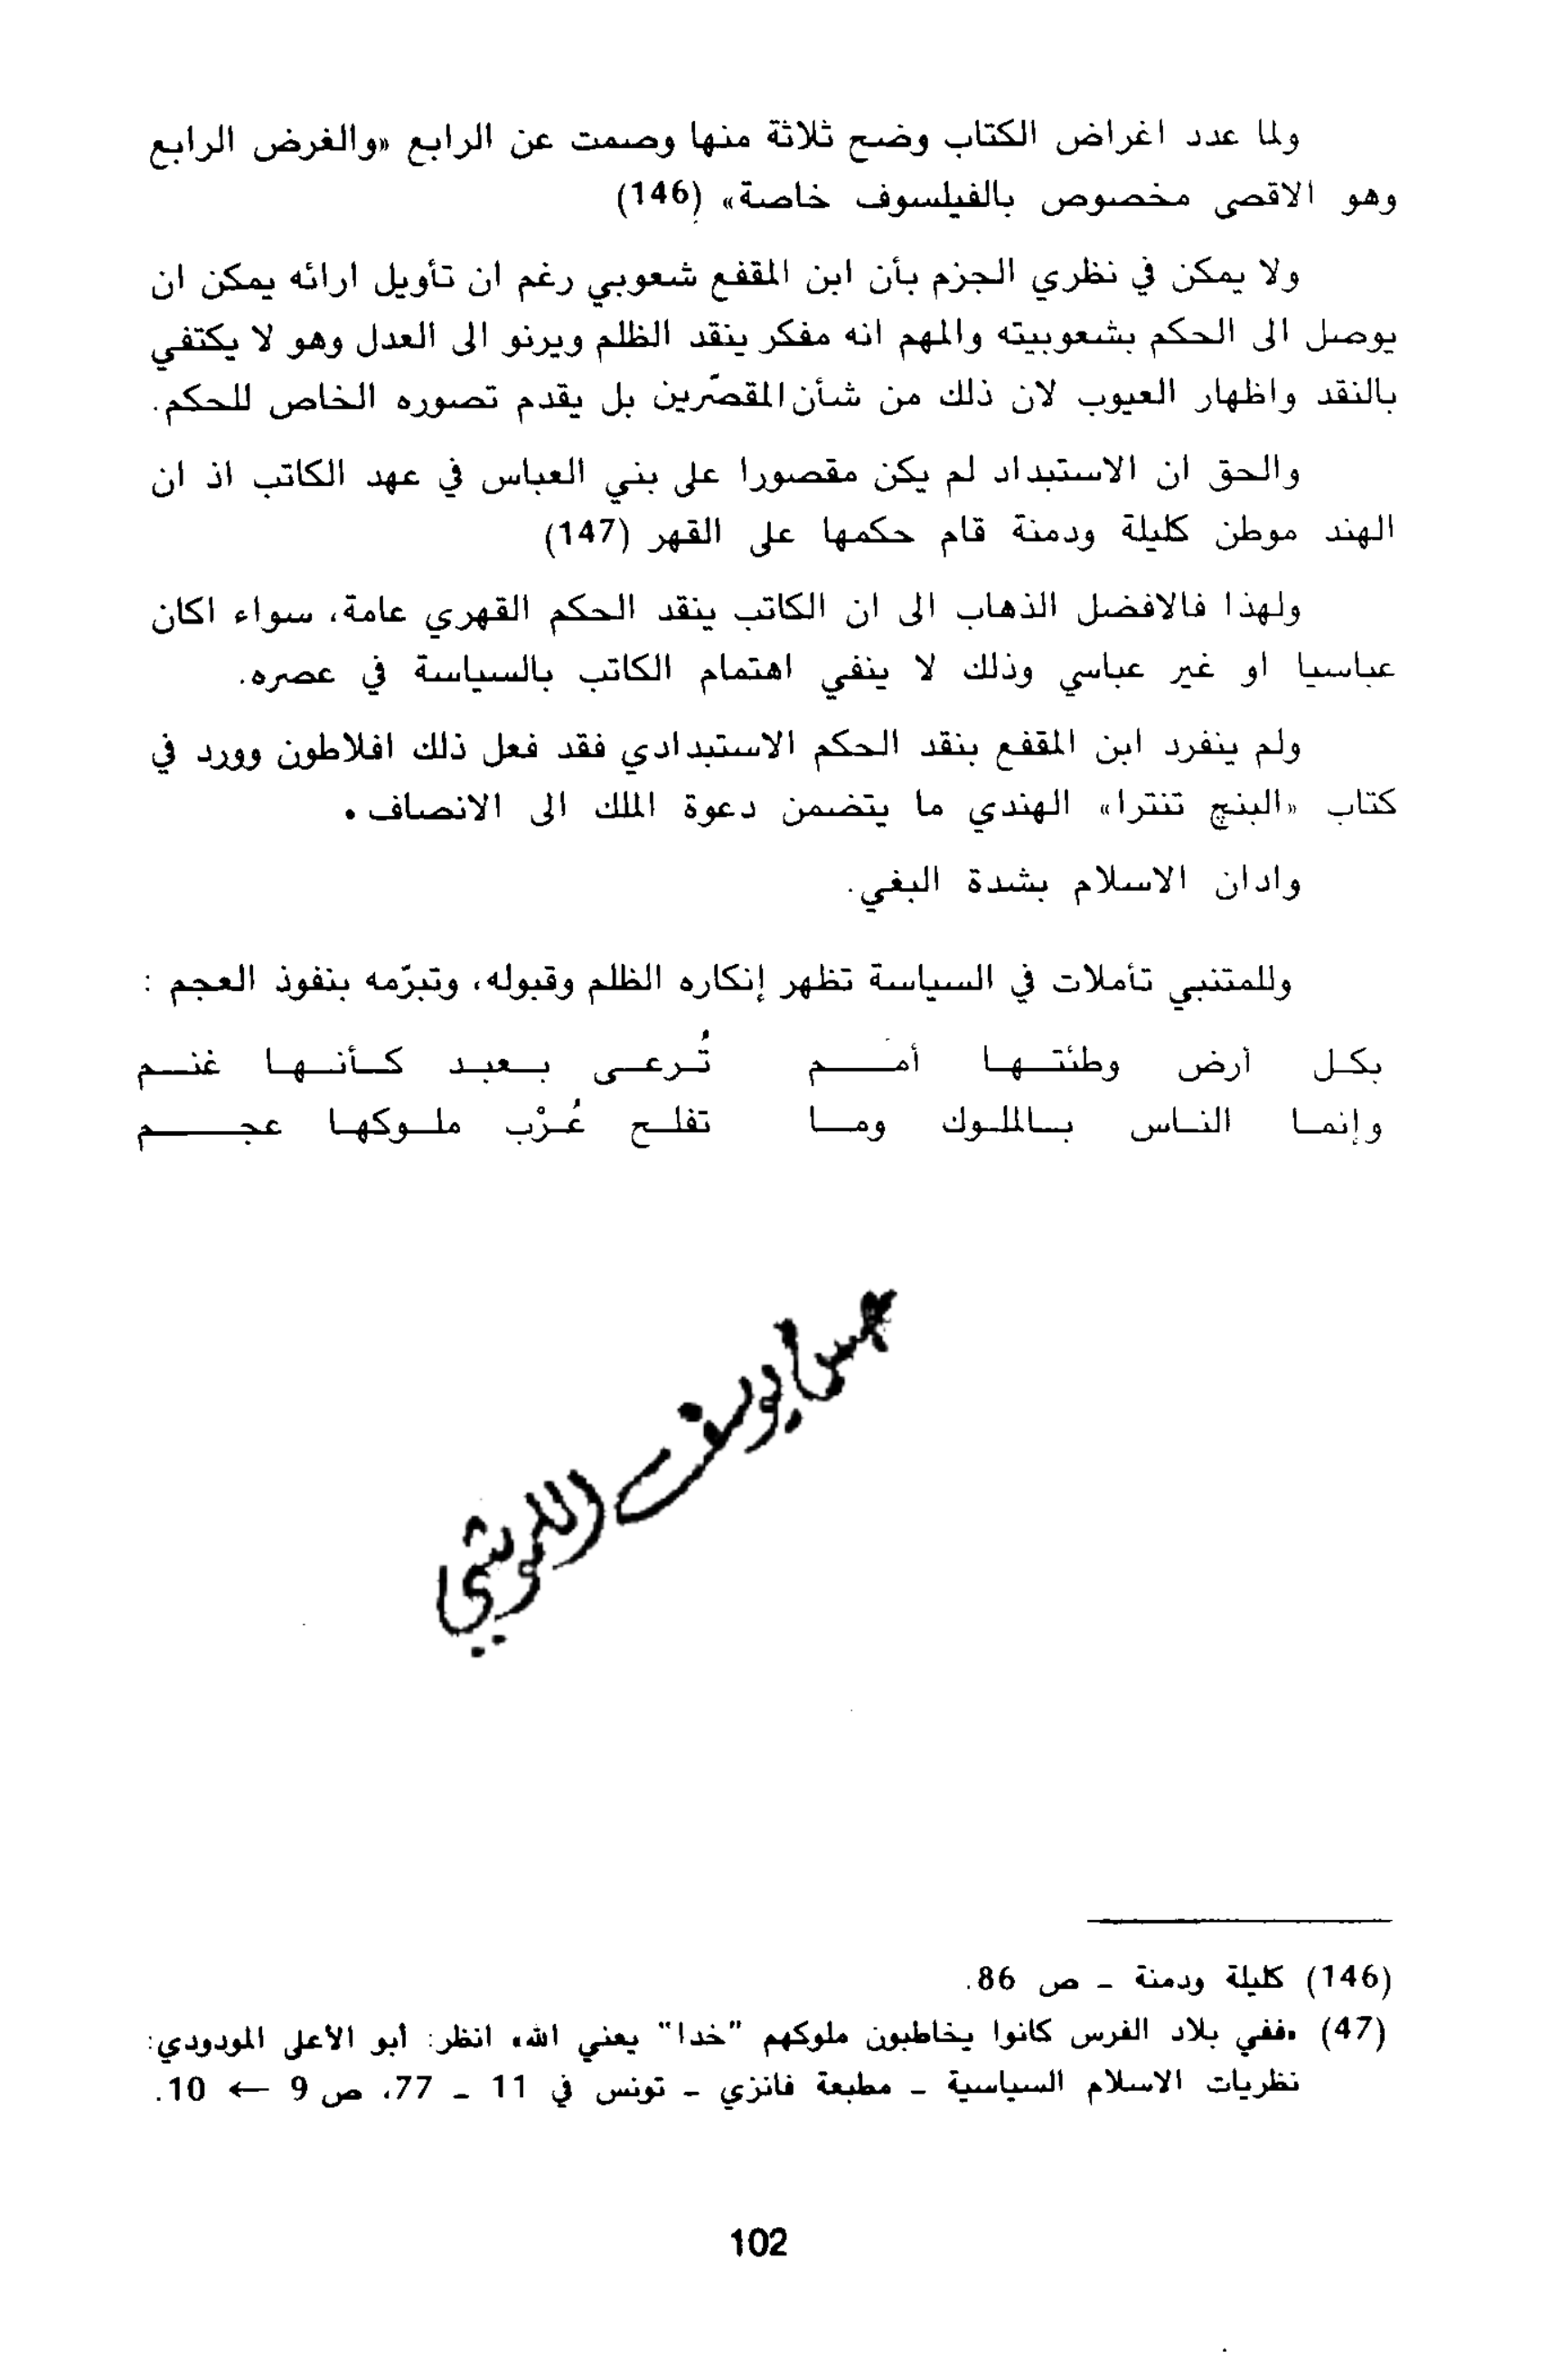 ولما عدد اغراض الكتاب وضح ثلاثة منها وصمت عن الرابع «والغرض الرابع
وهو الاقصى مخصوص بالفيلسوف خاصة» (146)
ولا يمكن في نظري الجزم بأن ابن المقفع شعوبي رغم ان تأويل ارائه يمكن ان
يوصل الى الحكم بشعوبيته والمهم انه مفكر ينقد الظلم ويرنو الى العدل وهو لا يكتفي
بالنقد واظهار العيوب لان ذلك من شأن المقصّرين بل يقدم تصوره الخاص للحكم.
والحق ان الاستبداد لم يكن مقصورا على بني العباس في عهد الكاتب اذ ان
الهند موطن كليلة ودمنة قام حكمها على القهر (147)
ولهذا فالافضل الذهاب الى ان الكاتب ينقد الحكم القهري عامة، سواء اكان
عباسيا او غير عباسي وذلك لا ينفي اهتمام الكاتب بالسياسة في عصره.
ولم ينفرد ابن المقفع بنقد الحكم الاستبدادي فقد فعل ذلك افلاطون وورد في
كتاب «البنچ تنترا» الهندي ما يتضمن دعوة الملك الى الانصاف •
وادان الاسلام بشدة البغي.
وللمتنبي تأملات في السياسة تظهر إنكاره الظلم وقبوله، وتبرّمه بنفوذ العجم :
بكل أرض وطئتها أمم تُرعى بعبد كأنها غنم
وإنما الناس بالملوك وما تفلح عُرْب ملوكها عجم
يوسف
(146) كليلة ودمنة - ص 86.
(47) «ففي بلاد الفرس كانوا يخاطبون ملوكهم "خدا" يعني الله» انظر: أبو الأعلى المودودي:
نظريات الاسلام السياسية - مطبعة فانزي - تونس في 11 - 77، ص 9 ← 10.
102